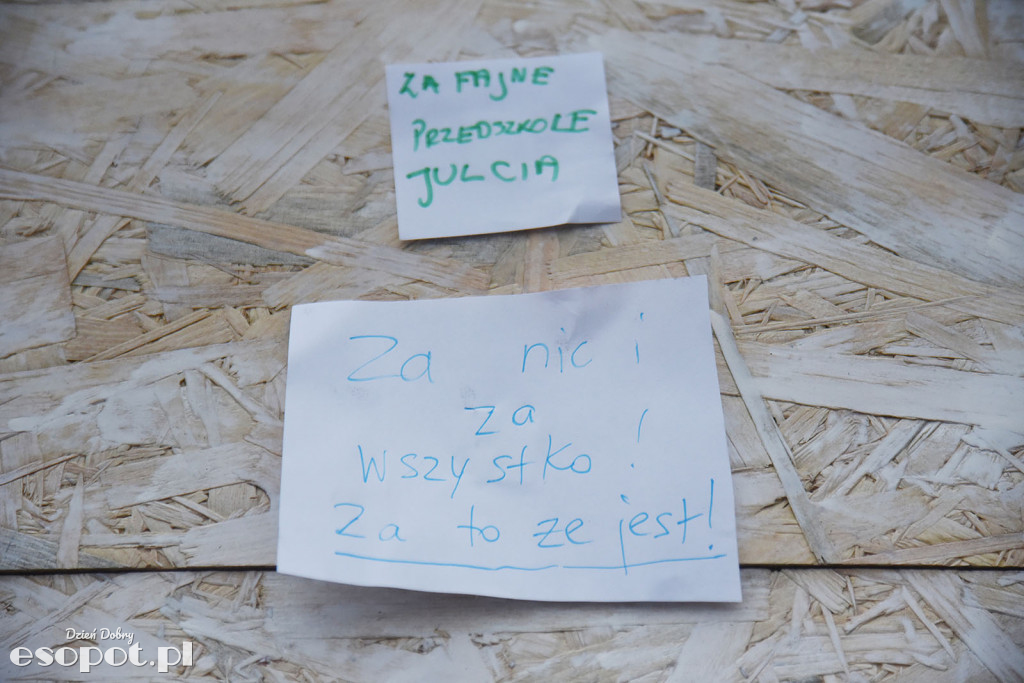 ZA FAJNE
PRZEDSZKOLE
JULCIA
Za nic i
za
wszystko!
Za to ze jest!
Dzień Dobry
esopot.pl